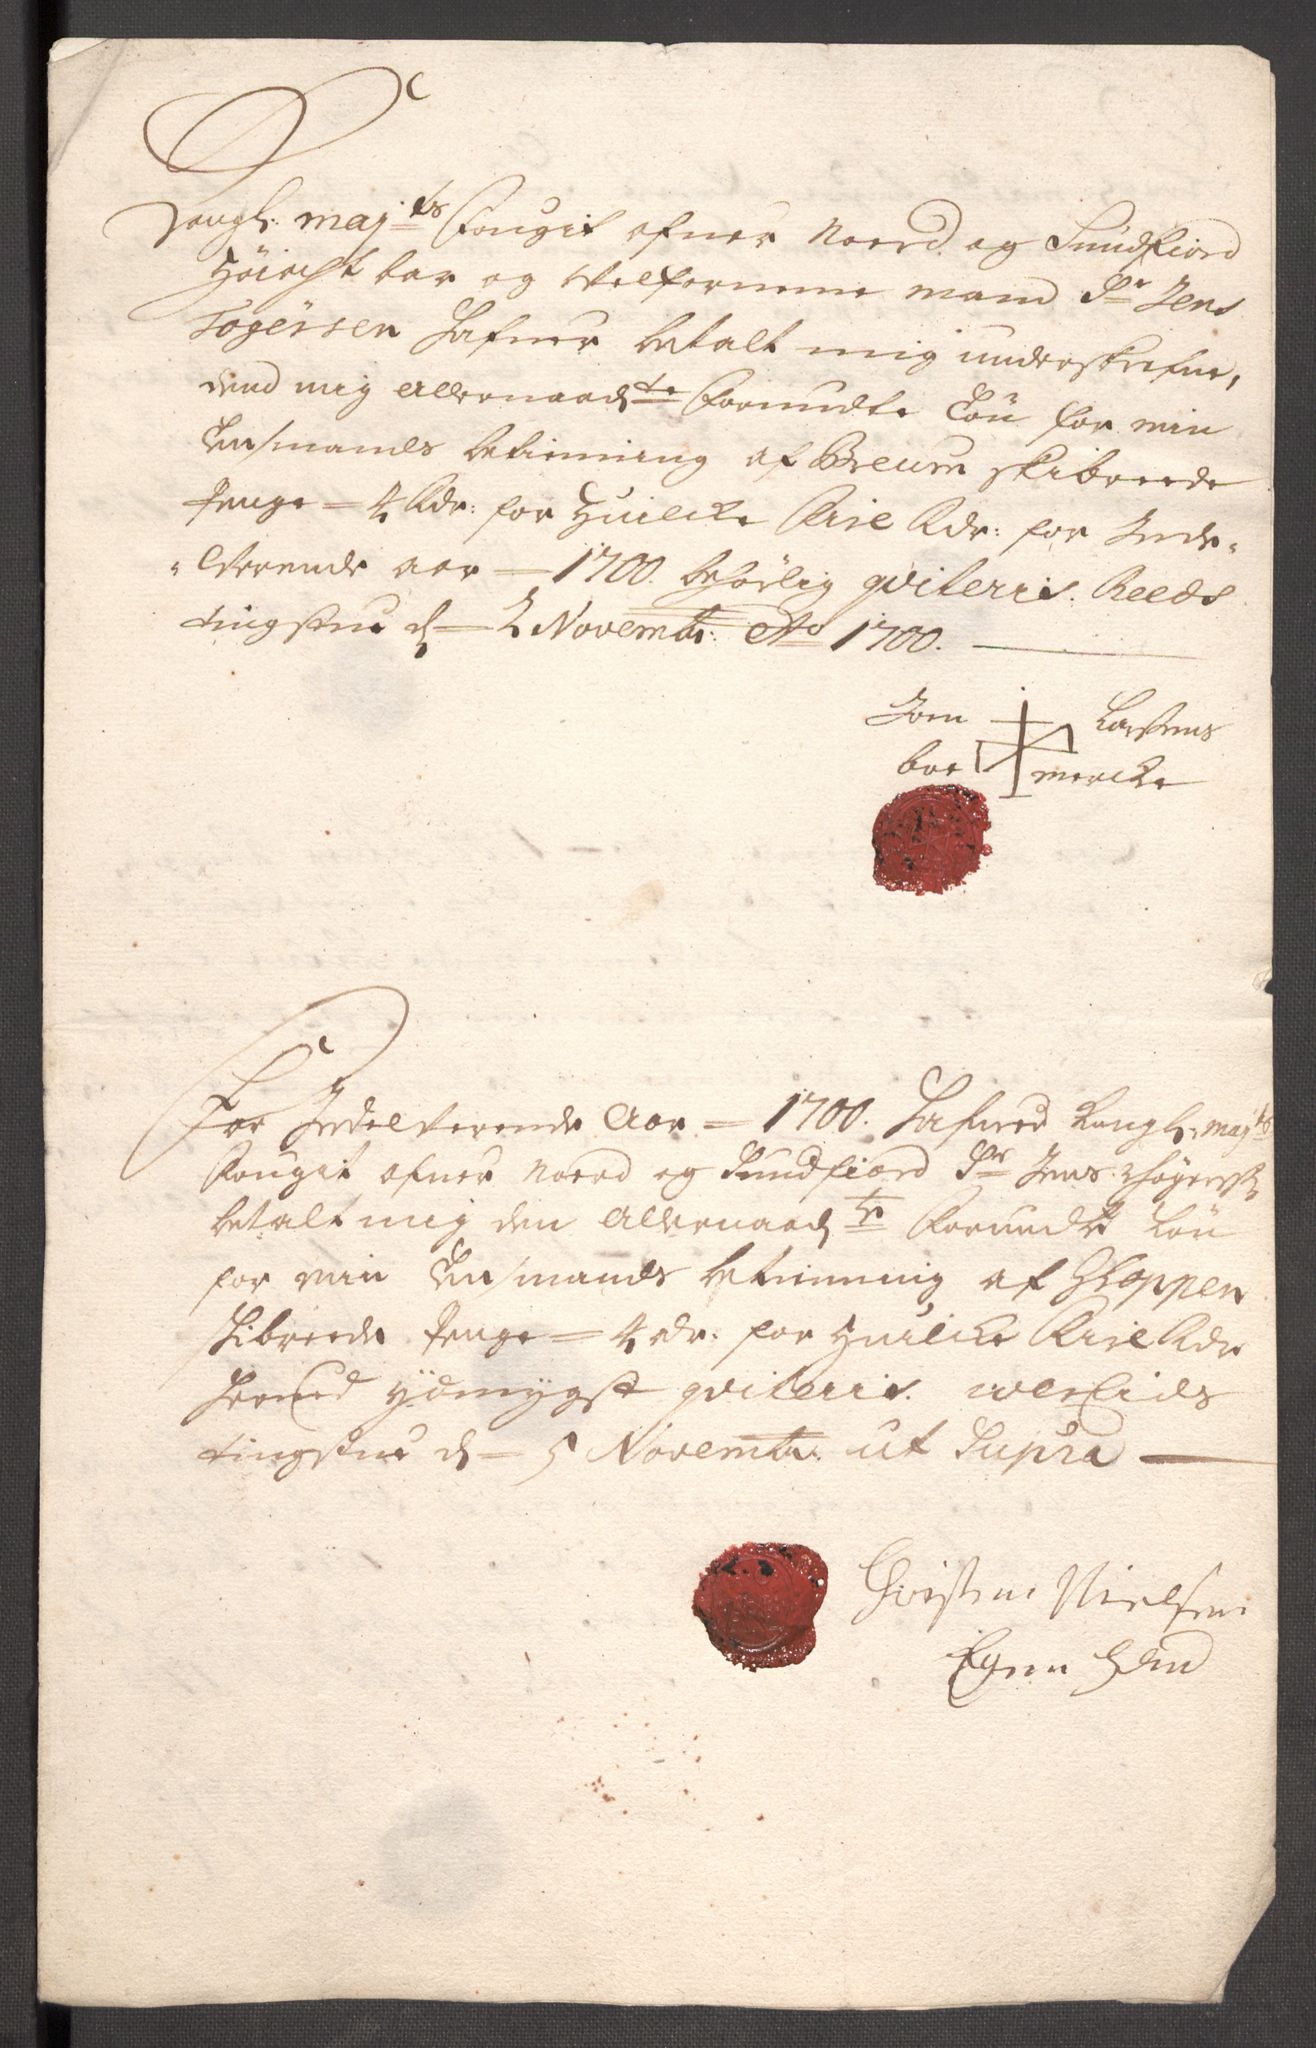 Kongl: maj:ts Fougit ofuer Noord og Sundfiord
Høiacht bar og Welforneme mand Sr Jens
Togersen Hafuer betalt mig underskrefne,
dend mig allernaadste Forundte Løn for min
Lensmands betienning af Breum skibreede
Penge = 4 Rdr: for Huilcke Fire Rdr: for Inde-
"Werende aar — 1700. behørlig qviteris. Reeds
tingstue d — 2 Novembr: Ao 1700.
Joen Larsens
boe mercke
For Indeiverende Aar = 1700. Hafuer Kongl: maj:ts
Fougit ofuer Noord og Sundfiord Sr Jens Thøgers:
betalt mig den allernaadste Forundte Løn
for min Lensmands betienning af Gloppen
skibreede Penge = 4 rdr. for Huilcke Fire Rdr
Hermed ydmygst qviteris. Wereids
tingstue d — 5 Novembr: ut Supra —
Christen Nielsen
Egen Hand